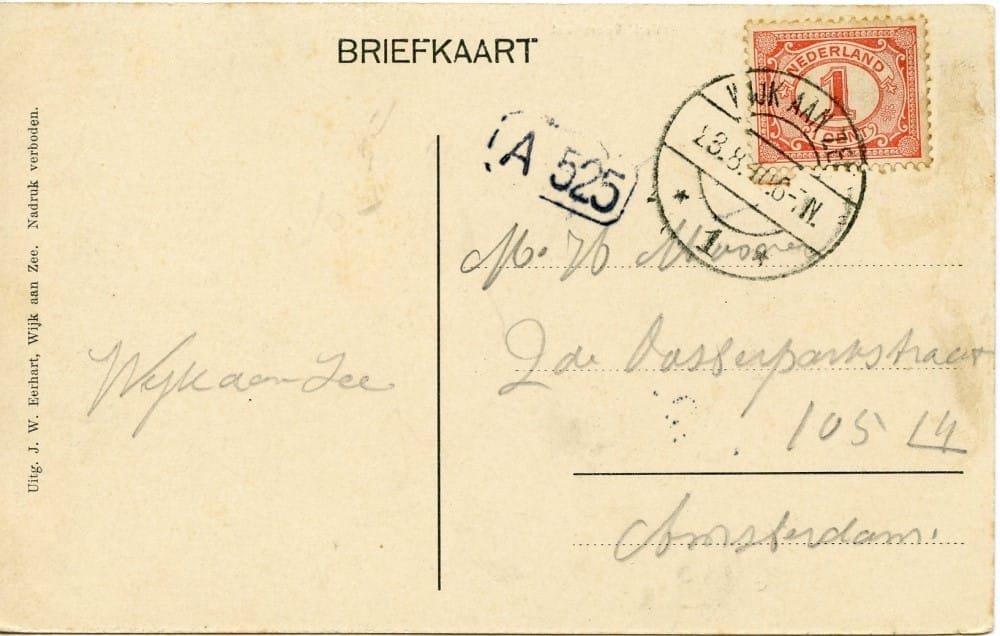 BRIEFKAART
NEDERLAND
1
CENT
WIJK AAN ZEE
23.8. 6-7N.
1
A 525
M. H
2de Oosterparkstraat
105
Amsterdam.
Wijk aan Zee
Uitg. J. W. Eerhart, Wijk aan Zee. Nadruk verboden.